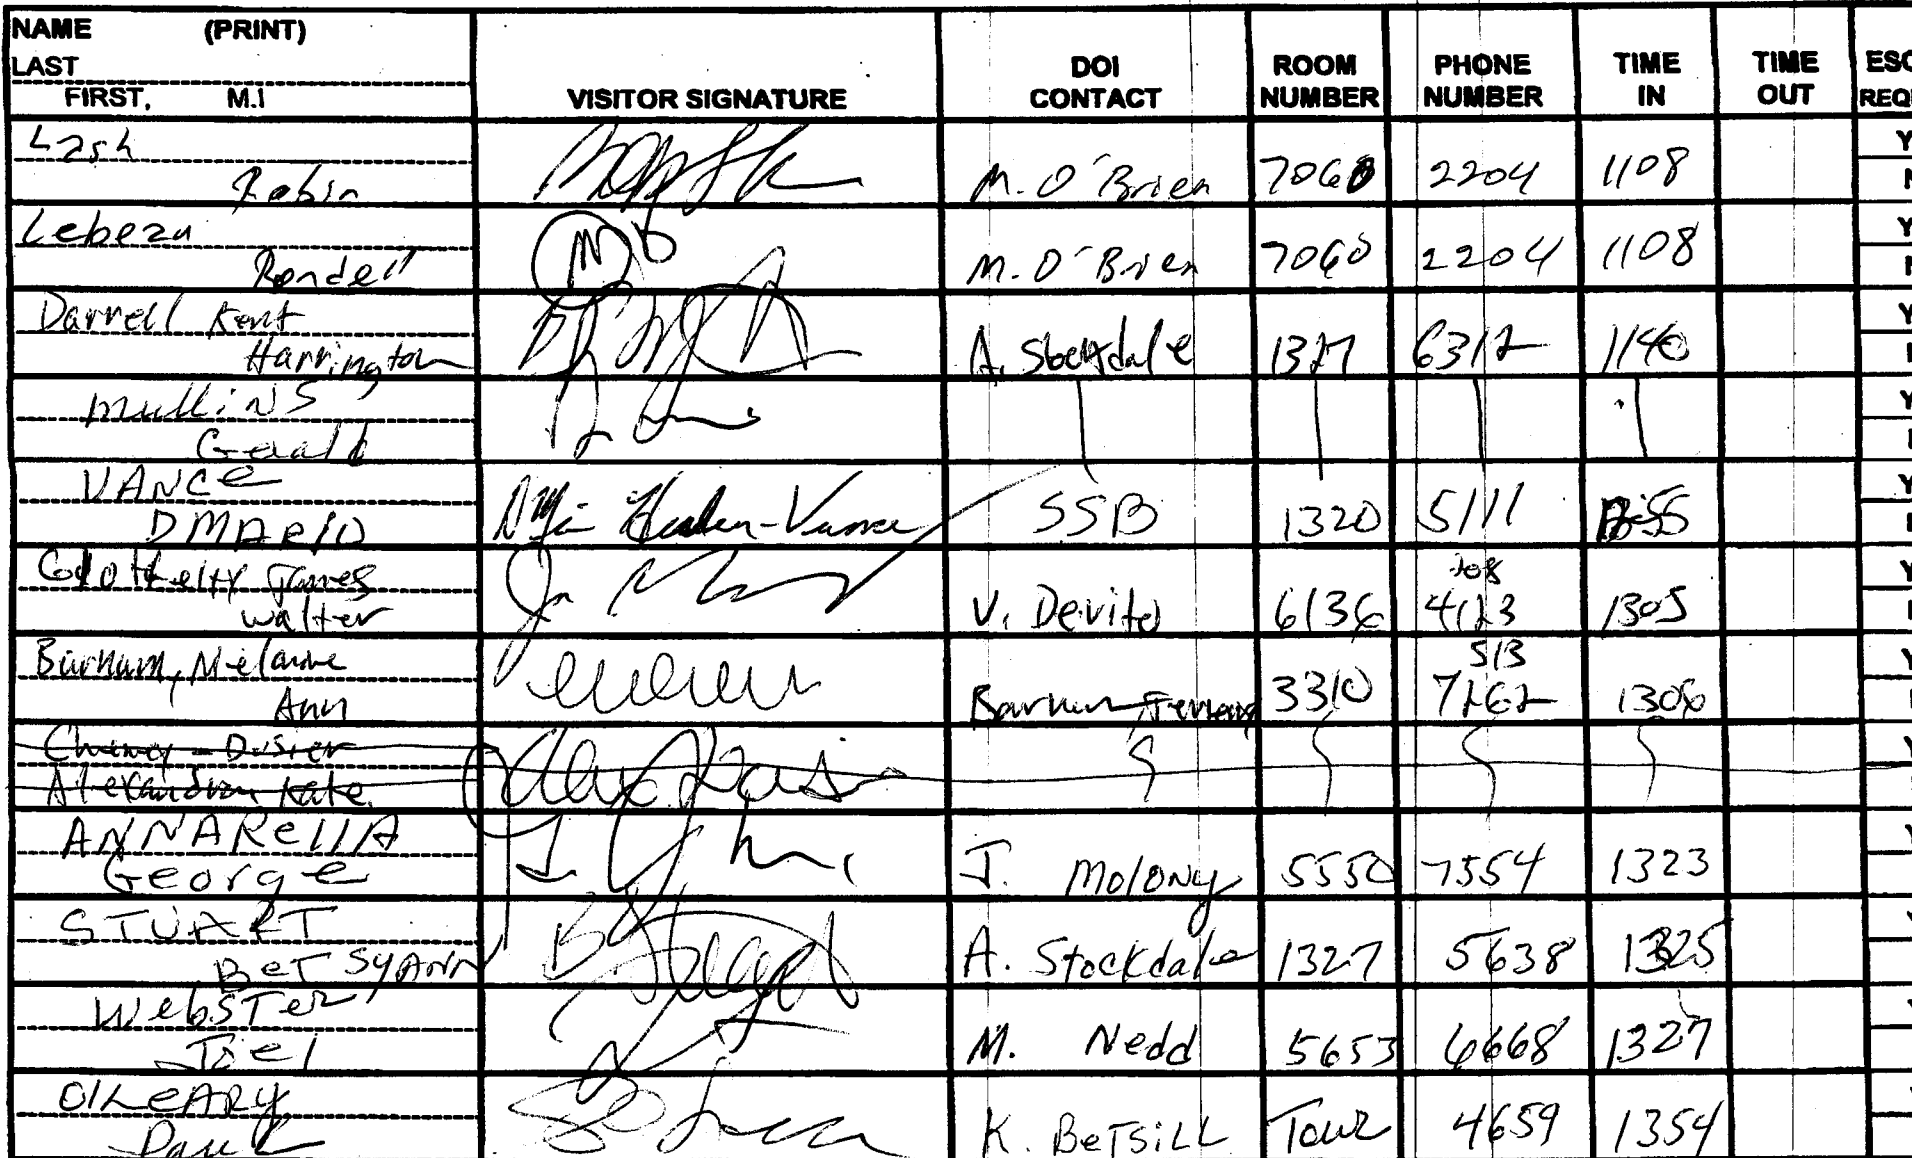 NAME (PRINT)
LAST
FIRST, M.I
VISITOR SIGNATURE
DOI CONTACT
ROOM NUMBER
PHONE NUMBER
TIME IN
TIME OUT
Lash
Robin M. O'Brien 7060 2204 1108
Rondell M. O'Brien 7060 2204 1108
Darrell Kent
Harrington A. Stockdale 1327 6312 1140
Mullins
Gerald
VANCE
DMARIO SSB 1320 5111
James
Walter V. Devito 6136 4123 1305
Burnum, Melanie 513
Ann 3310 7262 1306
Alexandra Kate
ANNARellA
George J. Molony 5550 7554 1323
STUART
BeTSYANN A. Stockdale 1327 5638 1325
WebSTer
Joel M. Nedd 5653 6668 1327
O'LeARY
Paul K. BeTSiLL Tour 4659 1354